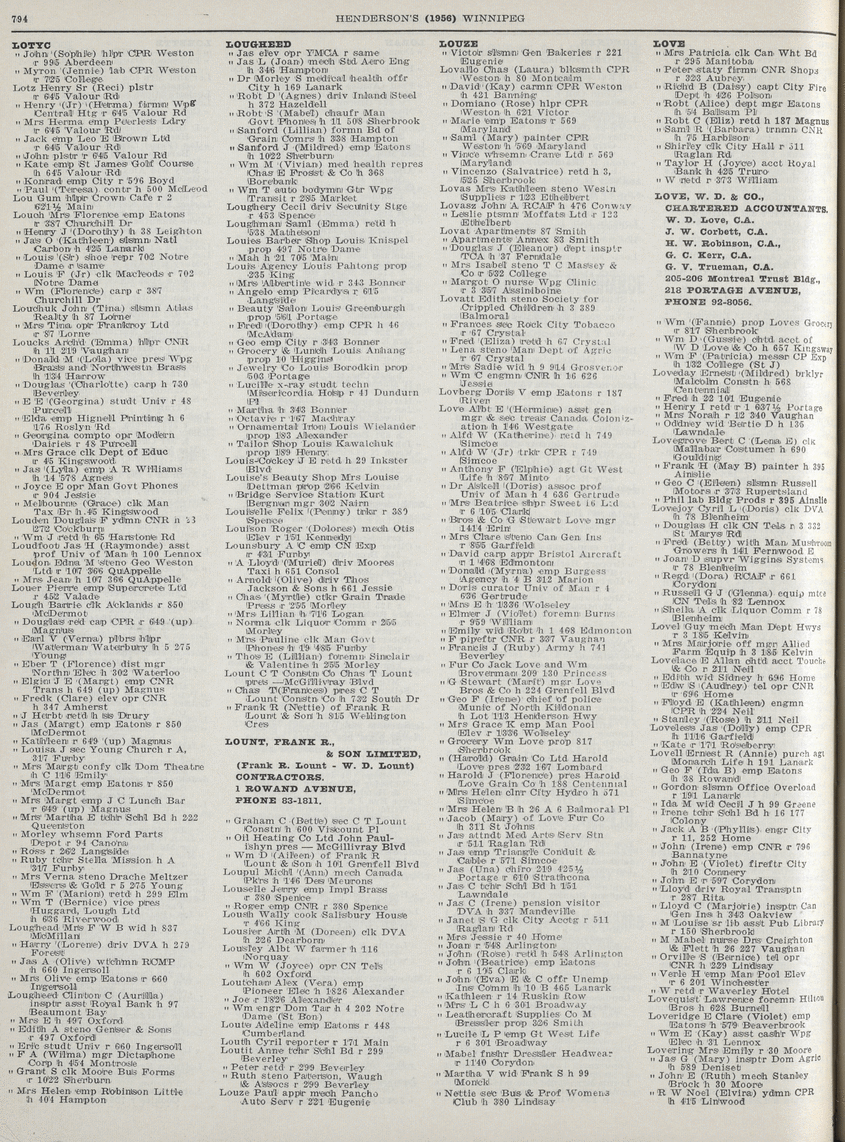 794
HENDERSON'S (1956) WINNIPEG
LOTYC
" John (Sophie) hlpr CPR Weston
r 995 Aberdeen
" Myron (Jennie) lab CPR Weston
r 725 College
Lotz Henry Sr (Reci) plstr
r 645 Valour Rd
" Henry (Jr) (Herma) firmn Wpg
Central Htg r 645 Valour Rd
" Mrs Herma emp Peerless Ldry
r 645 Valour Rd
" Jack emp Leo E Brown Ltd
r 645 Valour Rd
" John plstr r 645 Valour Rd
" Kate emp St James Golf Course
h 645 Valour Rd
" Konrad emp City r 596 Boyd
" Paul (Teresa) contr h 500 McLeod
Lou Gum hlpr Crown Cafe r 2
621½ Main
Louch Mrs Florence emp Eatons
r 387 Churchill Dr
" Henry J (Dorothy) h 38 Leighton
" Jas O (Kathleen) slsmn Natl
Carbon h 425 Lanark
" Louis (Sr) shoe repr 702 Notre
Dame r same
" Louis F (Jr) clk Macleods r 702
Notre Dame
" Wm (Florence) carp r 387
Churchill Dr
Louchuk John (Tina) slsmn Atlas
Realty h 87 Lorne
" Mrs Tina opr Frankroy Ltd
r 87 Lorne
Loucks Archd (Emma) hlpr CNR
h 11 219 Vaughan
" Donald M (Lola) vice pres Wpg
Brass and Northwestn Brass
h 134 Harrow
" Douglas (Charlotte) carp h 730
Beverley
" E E (Georgina) studt Univ r 48
Purcell
" Elda emp Hignell Printing h 6
176 Roslyn Rd
" Georgina compto opr Modern
Dairies r 48 Purcell
" Mrs Grace clk Dept of Educ
r 45 Kingswood
" Jas (Lyla) emp A R Williams
h 14 578 Agnes
" Joyce E opr Man Govt Phones
r 904 Jessie
" Melbourne (Grace) clk Man
Tax Br h 45 Kingswood
Louden Douglas F ydmn CNR h 13
272 Cockburn
" Wm J retd h 65 Harstone Rd
Loudfoot Jas H (Raymonde) asst
prof Univ of Man h 100 Lennox
Loudon Edna M steno Geo Weston
Ltd r 107 366 QuAppelle
" Mrs Jean h 107 366 QuAppelle
Louer Pierre emp Supercrete Ltd
r 452 Valade
Lough Barrie clk Acklands r 850
McDermot
" Douglas red cap CPR r 649 (up)
Magnus
" Earl V (Verna) plbrs hlpr
Waterman Waterbury h 5 275
Young
" Eber T (Florence) dist mgr
North Elec h 302 Waterloo
" Elgin J E (Margt) emp CNR
Trans h 649 (up) Magnus
" Fredk (Clare) elev opr CNR
h 347 Amherst
" J Herbt retd h ss Drury
" Jas (Margt) emp Eatons r 850
McDermot
" Kathleen r 649 (up) Magnus
" Louisa J sec Young Church r A,
317 Furby
" Mrs Margt confy clk Dom Theatre
h C 116 Emily
" Mrs Margt emp Eatons r 850
McDermot
" Mrs Margt emp J C Lunch Bar
r 649 (up) Magnus
" Mrs Martha E tchr Schl Bd h 222
Queenston
" Morley whsemn Ford Parts
Depot r 94 Canora
" Ross r 262 Langside
" Ruby tchr Stella Mission h A
317 Furby
" Mrs Verna steno Drache Meltzer
Essers & Gold r 5 275 Young
" Wm F (Marion) retd h 299 Elm
" Wm T (Bernice) vice pres
Huggard, Lough Ltd
h 636 Riverwood
Loughead Mrs F W B wid h 837
McMillan
" Harry (Lorene) driv DVA h 279
Forest
" Jas A (Olive) wtchmn RCMP
h 660 Ingersoll
" Mrs Olive emp Eatons r 660
Ingersoll
Lougheed Clinton C (Aurilla)
insptr asst Royal Bank h 97
Beaumont Bay
" Mrs E h 497 Oxford
" Edith A steno Genser & Sons
r 497 Oxford
" Eric studt Univ r 660 Ingersoll
" F A (Wilma) mgr Dictaphone
Corp h 454 Montrose
" Grant S clk Moore Bus Forms
r 1022 Sherburn
" Mrs Helen emp Robinson Little
h 404 Hampton
LOUGHEED
" Jas elev opr YMCA r same
" Jas L (Joan) mech Std Aero Eng
h 346 Hampton
" Dr Morley S medical health offr
City h 169 Lanark
" Robt D (Agnes) driv Inland Steel
h 372 Hazeldell
" Robt S (Mabel) chaufr Man
Govt Phones h 11 508 Sherbrook
" Sanford (Lillian) formn Bd of
Grain Comrs h 338 Hampton
" Sanford J (Mildred) emp Eatons
h 1022 Sherburn
" Wm M (Vivian) med health repres
Chas E Frosst & Co h 368
Borebank
" Wm T auto bodymn Gtr Wpg
Transit r 285 Market
Loughery Cecil driv Security Stge
r 453 Spence
Loughman Saml (Emma) retd h
538 Matheson
Louies Barber Shop Louis Knispel
prop 497 Notre Dame
" Mah h 21 705 Main
Louis Agency Louis Pahtong prop
235 King
" Mrs Albertine wid r 343 Bonner
" Angelo emp Picardys r 615
Langside
" Beauty Salon Louis Greenburgh
prop 561 Portage
" Fred (Dorothy) emp CPR h 46
McAdam
" Geo emp City r 343 Bonner
" Grocery & Lunch Louis Anhang
prop 10 Higgins
" Jewelry Co Louis Borodkin prop
503 Portage
" Lucille x-ray studt techn
Misericordia Hosp r 41 Dundurn
Pl
" Martha h 343 Bonner
" Octavie r 167 Machray
" Ornamental Iron Louis Wielander
prop 183 Alexander
" Tailor Shop Louis Kawalchuk
prop 189 Henry
Louis-Cockey J E retd h 29 Inkster
Blvd
Louise's Beauty Shop Mrs Louise
Dettman prop 266 Kelvin
" Bridge Service Station Kurt
Bergman mgr 302 Nairn
Louiselle Felix (Penny) trkr r 389
Spence
Louison Roger (Dolores) mech Otis
Elev r 151 Kennedy
Lounsbury A C emp CN Exp
r 431 Furby
" A Lloyd (Muriel) driv Moores
Taxi h 651 Consol
" Arnold (Olive) driv Thos
Jackson & Sons 661 Jessie
" Chas (Myrtle) ctkr Grain Trade
Press r 255 Morley
" Mrs Lillian h 716 Logan
" Norma clk Liquor Comm r 255
Morley
" Mrs Pauline clk Man Govt
Phones h 19 485 Furby
" Thos E (Lillian) foremn Sinclair
& Valentine h 255 Morley
Lount C T Constn Co Chas T Lount
pres —McGillivray Blvd
" Chas T(Frances) pres C T
Lount Constn Co h 732 South Dr
" Frank R (Nettie) of Frank R
Lount & Son h 815 Wellington
Cres
LOUNT, FRANK R.,
& SON LIMITED,
(Frank R. Lount - W. D. Lount)
CONTRACTORS.
1 ROWAND AVENUE,
PHONE 83-1811,
" Graham C (Bette) sec C T Lount
Constn h 600 Viscount Pl
" Oil Heating Co Ltd John Paul-
ishyn pres — McGillivray Blvd
" Wm D (Aileen) of Frank R
Lount & Son h 101 Grenfell Blvd
Loupul Michl (Ann) mech Canada
Pkrs h 146 Des Meurons
Louselle Jenny emp Impl Brass
r 380 Spence
" Roger emp CNR r 380 Spence
Loush Wally cook Salisbury House
r 466 King
Lousier Arth M (Doreen) clk DVA
h 226 Dearborn
Lousley Albt W farmer h 116
Norquay
" Wm W (Joyce) opr CN Tels
h 602 Oxford
Loutchan Alex (Vera) emp
Pioneer Elec h 1826 Alexander
" Joe r 1826 Alexander
" Wm engr Dom Tar h 4 202 Notre
Dame (St Bon)
Loute Adeline emp Eatons r 448
Cumberland
Louth Cyril reporter r 171 Main
Loutit Anne tchr Schl Bd r 299
Beverley
" Peter retd r 299 Beverley
" Ruth steno Paterson, Waugh
& Assocs r 299 Beverley
Louze Paul appr mech Pancho
Auto Serv r 221 Eugenie
LOUZE
" Victor slsmn Gen Bakeries r 221
Eugenie
Lovallo Chas (Laura) blksmth CPR
Weston h 80 Montcalm
" David (Kay) carmn CPR Weston
h 421 Banning
" Domiano (Rose) hlpr CPR
Weston h 621 Victor
" Marie emp Eatons r 569
Maryland
" Saml (Mary) painter CPR
Weston h 569 Maryland
" Vince whsemn Crane Ltd r 569
Maryland
" Vincenzo (Salvatrice) retd h 3,
525 Sherbrook
Lovas Mrs Kathleen steno Wesin
Supplies r 123 Ethelbert
Lovasz John A RCAF h 476 Conway
" Leslie ptsmn Moffats Ltd r 123
Ethelbert
Lovat Apartments 87 Smith
" Apartments Annex 83 Smith
" Douglas J (Eleanor) dept insptr
TCA h 37 Ferndale
" Mrs Isabel steno T C Massey &
Co r 532 College
" Margot O nurse Wpg Clinic
r 3 357 Assiniboine
Lovatt Edith steno Society for
Crippled Children h 3 389
Balmoral
" Frances sec Rock City Tobacco
r 67 Crystal
" Fred (Eliza) retd h 67 Crystal
" Lena steno Man Dept of Agric
r 67 Crystal
" Mrs Sadie wid h 9 914 Grosvenor
" Wm C engmn CNR h 16 626
Jessie
Lovberg Doris V emp Eatons r 187
River
Love Albt E (Hermine) asst gen
mgr & sec treas Canada Coloniz-
ation h 146 Westgate
" Alfd W (Katherine) retd h 749
Simcoe
" Alfd W (Jr) trkr CPR r 749
Simcoe
" Anthony F (Elphie) agt Gt West
Life h 857 Minto
" Dr Askell (Doris) assoc prof
Univ of Man h 4 636 Gertrude
" Mrs Beatrice slspr Sweet 16 Ltd
r 6 105 Clark
" Bros & Co G Stewart Love mgr
1414 Erin
" Mrs Clare steno Can Gen Ins
r 855 Garfield
" David carp appr Bristol Aircraft
r 1 468 Edmonton
" Donald (Myrna) emp Burgess
Agency h 4 B 312 Marion
" Doris curator Univ of Man r 4
636 Gertrude
" Mrs E h 1336 Wolseley
" Elmer J (Violet) foremn Burns
r 959 William
" Emily wid Robt h 1 468 Edmonton
" F pipeftr CNR r 307 Vaughan
" Francis J (Ruby) Army h 741
Beverley
" Fur Co Jack Love and Wm
Broverman 209 130 Princess
" G Stewart (Marit) mgr Love
Bros & Co h 224 Grenfell Blvd
" Geo F (Irene) chief of police
Munic of North Kildonan
h Lot 113 Henderson Hwy
" Mrs Grace K emp Man Pool
Elev r 1336 Wolseley
" Grocery Wm Love prop 817
Sherbrook
" (Harold) Grain Co Ltd Harold
Love pres 232 167 Lombard
" Harold J (Florence) pres Harold
Love Grain Co h 188 Centennial
" Mrs Helen clnr City Hydro h 571
Simcoe
" Mrs Helen B h 26 A 6 Balmoral Pl
" Jacob (Mary) of Love Fur Co
h 311 St Johns
" Jas attndt Med Arts Serv Stn
r 511 Raglan Rd
" Jas emp Triangle Conduit &
Cable r 571 Simcoe
" Jas (Una) chiro 219 425½
Portage r 610 Strathcona
" Jas C tchr Schl Bd h 151
Lawndale
" Jas C (Irene) pension visitor
DVA h 337 Mandeville
" Janet S G clk City Acctg r 511
Raglan Rd
" Mrs Jessie r 40 Home
" Joan r 548 Arlington
" John (Rose) retd h 548 Arlington
" John (Beatrice) emp Eatons
r 6 195 Clark
" John (Eva) E & C offr Unemp
Ins Comm h 10 B 465 Lanark
" Kathleen r 14 Ruskin Row
" Mrs L C h 6 301 Broadway
" Leathercraft Supplies Co M
Bressler prop 326 Smith
" Lucile L P emp Gt West Life
r 6 301 Broadway
" Mabel fnshr Dressler Headwear
r 1140 Corydon
" Martha V wid Frank S h 99
Monck
" Nettie sec Bus & Prof Womens
Club h 380 Lindsay
LOVE
" Mrs Patricia clk Can Wht Bd
r 295 Manitoba
" Peter staty firmn CNR Shops
r 323 Aubrey
" Richd B (Daisy) capt City Fire
Dept h 426 Polson
" Robt (Alice) dept mgr Eatons
h 54 Balsam Pl
" Robt C (Eliz) retd h 187 Magnus
" Saml R (Barbara) trnmn CNR
h 75 Harbison
" Shirley clk City Hall r 511
Raglan Rd
" Taylor H (Joyce) acct Royal
Bank h 425 Truro
" W retd r 373 William
LOVE, W. D. & CO.,
CHARTERED ACCOUNTANTS,
W. D. Love, C.A.
J. W. Corbett, C.A.
H. W. Robinson, C.A.,
G. C. Kerr, C.A.
G. V. Trueman, C.A.
205-206 Montreal Trust Bldg.,
218 PORTAGE AVENUE,
PHONE 92-8056.
" Wm (Fannie) prop Loves Grocery
r 817 Sherbrook
" Wm D (Gussie) chtd acct of
W D Love & Co h 657 Kingsway
" Wm F (Patricia) messr CP Exp
h 132 College (St J)
Loveday Ernest (Mildred) brklyr
Malcolm Constn h 568
Centennial
" Fred h 22 101 Eugenie
" Henry I retd r 1 637½ Portage
" Mrs Norah r 12 340 Vaughan
" Oddney wid Bertie D h 136
Lawndale
Lovegrove Bert C (Lena E) clk
Mallabar Costumer h 690
Goulding
" Frank H (May B) painter h 395
Ainslie
" Geo C (Eileen) slsmn Russell
Motors r 373 Rupertsland
" Phil lab Bldg Prods r 395 Ainslie
Lovejoy Cyril L (Doris) clk DVA
h 78 Blenheim
" Douglas H clk CN Tels r 3 332
St Marys Rd
" Fred (Betty) with Man Mushroom
Growers h 141 Fernwood E
" Joan D supvr Wiggins Systems
r 78 Blenheim
" Regd (Dora) RCAF r 661
Corydon
" Russell G J (Glenna) equip mtce
CN Tels h 92 Lennox
" Sheila A clk Liquor Comm r 78
Blenheim
Lovel Guy mech Man Dept Hwys
r 3 185 Kelvin
" Mrs Marjorie off mgr Allied
Farm Equip h 3 185 Kelvin
Lovelace E Allan cht'd acct Touche
& Co r 211 Neil
" Edith wid Sidney h 696 Home
" Edw S (Audhey) tel opr CNR
r 696 Home
" Floyd E (Kathleen) engmn
CPR h 224 Neil
" Stanley (Rose) h 211 Neil
Loveless Jas (Dolly) emp CPR
h 1116 Garfield
" Kate r 171 Roseberry
Lovell Ernest R (Annie) purch agt
Monarch Life h 191 Lanark
" Geo F (Ida B) emp Eatons
h 38 Rowand
" Gordon slsmn Office Overload
r 191 Lanark
" Ida M wid Cecil J h 99 Greene
" Irene tchr Schl Bd h 16 177
Colony
" Jack A B (Phyllis) engr City
r 11, 252 Home
" John (Irene) emp CNR r 796
Bannatyne
" John E (Violet) fireftr City
h 210 Conway
" John E r 597 Corydon
" Lloyd driv Royal Transptn
r 287 Rita
" Lloyd C (Marjorie) insptr Can
Gen Ins h 343 Oakview
" M Louise sr lib asst Pub Library
r 150 Sherbrook
" M Mabel nurse Drs Creighton
& Flett h 26 227 Vaughan
" Orville S (Bernice) tel opr
CNR h 229 Lindsay
" Verle H emp Man Pool Elev
r 6 201 Winchester
" W retd r Waverley Hotel
Lovequist Lawrence foremn Hilton
Bros h 628 Burnell
Loveridge E Clare (Violet) emp
Eatons h 579 Beaverbrook
" Wm E (Kay) asst cashr Wpg
Elec h 31 Lennox
Lovering Mrs Emily r 30 Moore
" Jas G (Mary) insptr Dom Agric
h 589 Deniset
" John E (Ruth) mech Stanley
Brock h 30 Moore
" R W Noel (Elvira) ydmn CPR
h 415 Linwood